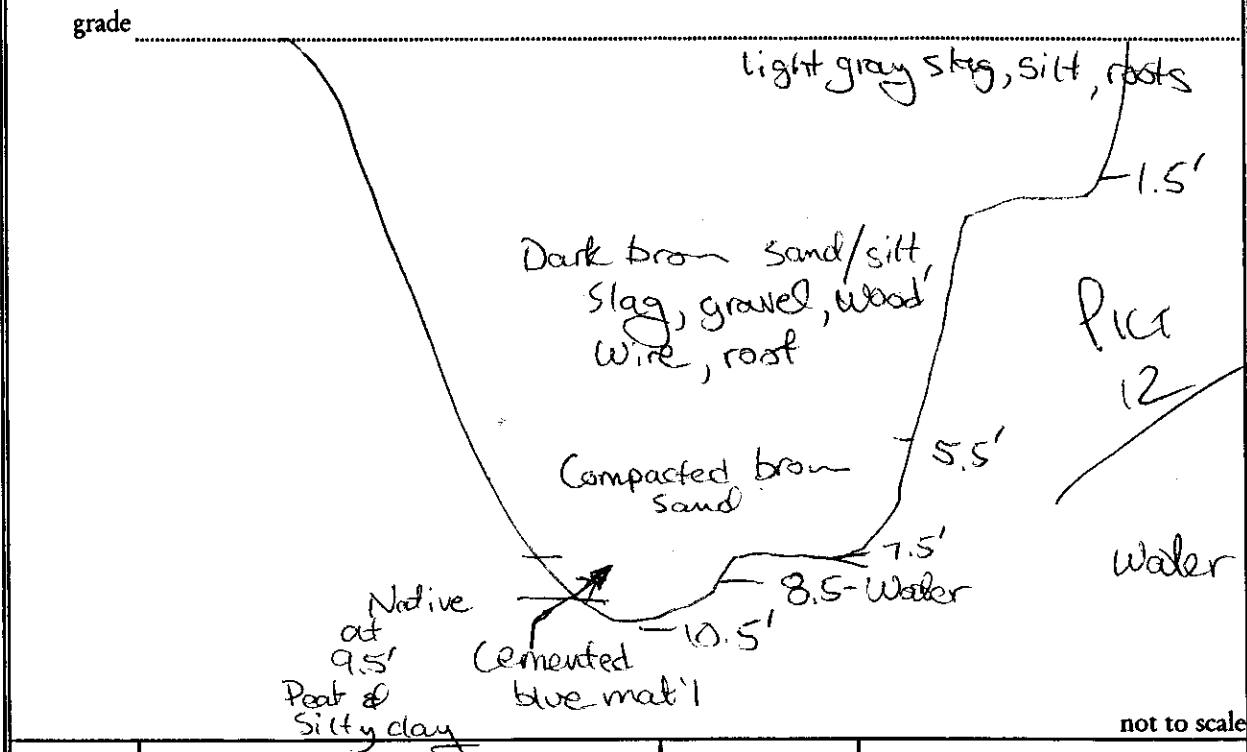 grade
light gray slag, silt, roots
1.5'
Dark brown sand/silt,
slag, gravel, wood
wire, root
5.5'
Compacted brown
sand
7.5'
8.5-Water
10.5'
Native
at
9.5'
Peat &
Silty clay
Cemented
blue mat'l
12
Water
not to scale